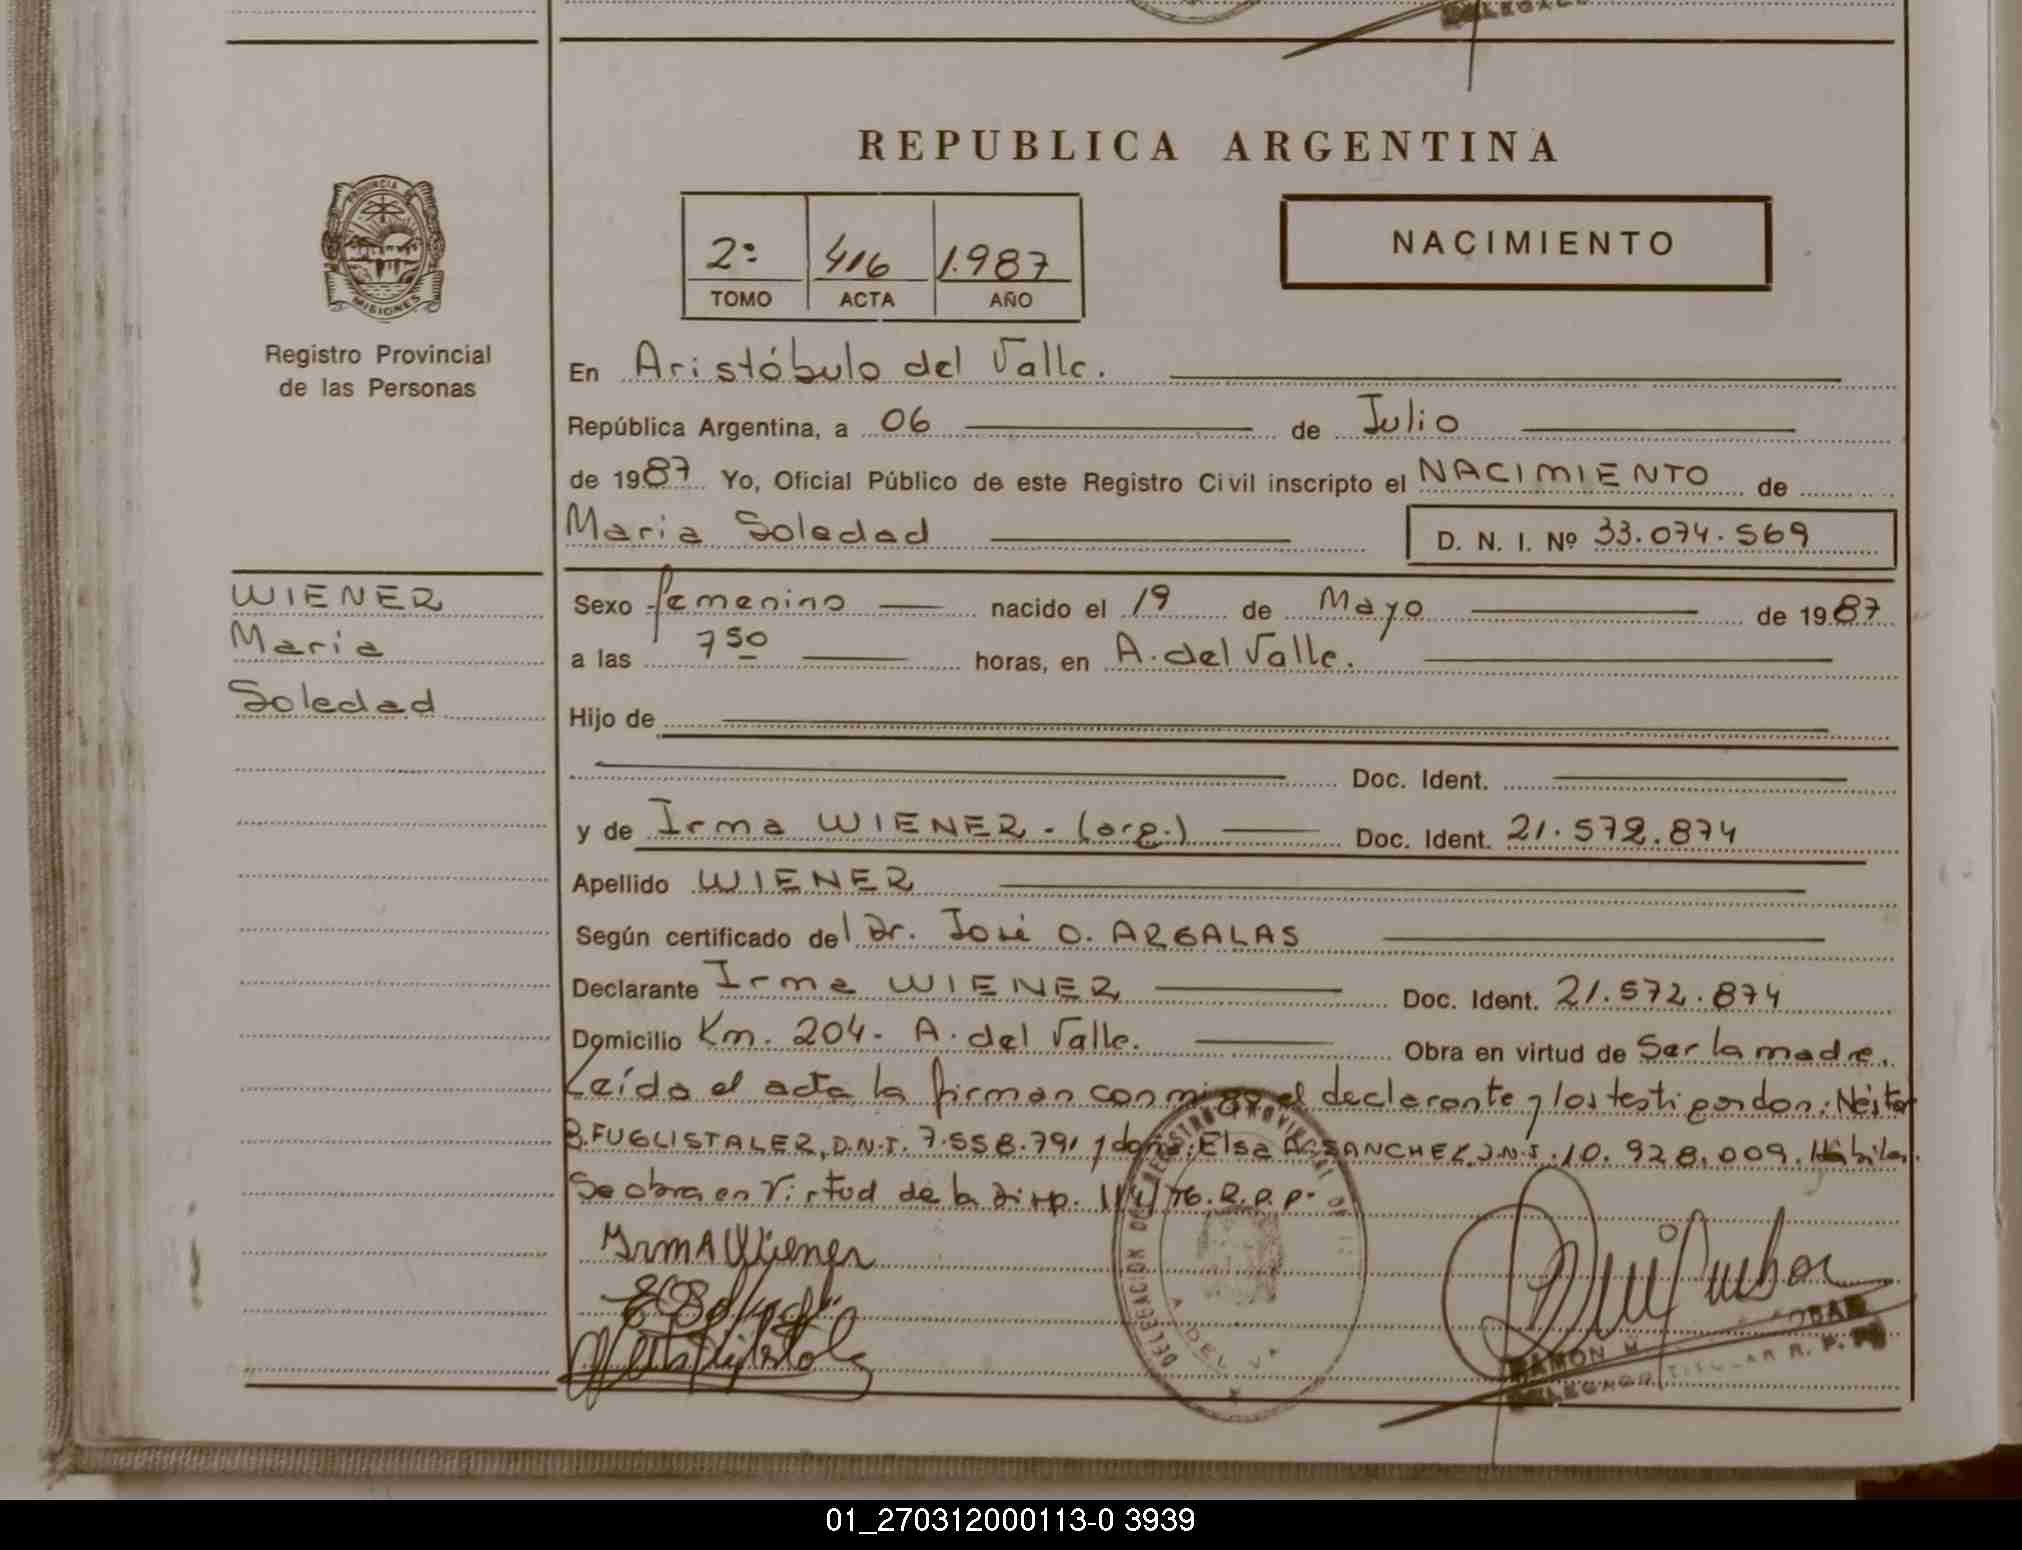 REPUBLICA ARGENTINA
NACIMIENTO
2º 416 1.987
TOMO ACTA AÑO
PROVINCIA DE
MISIONES
Registro Provincial
de las Personas
En Aristóbulo del Valle.
República Argentina, a 06 de Julio
de 1987 Yo, Oficial Público de este Registro Civil inscripto el NACIMIENTO de
Maria Soledad D. N. I. Nº 33.074.569
WIENER
María
Soledad
Sexo femenino nacido el 19 de Mayo de 1987
a las 7 50 horas, en A. del Valle.
Hijo de
Doc. Ident.
y de Irma WIENER - (arg.) Doc. Ident. 21.572.874
Apellido WIENER
Según certificado del Dr. José O. ARGALAS
Declarante Irma WIENER Doc. Ident. 21.572.874
Domicilio Km. 204- A. del Valle. Obra en virtud de Ser la madre.
Leído el acta la firman conmigo el declarante y los testigos don: Néstor
B. FUGLISTALER, D.N.I. 7.558.791 y doña: Elsa A. SANCHEZ D.N.I. 10.928.009. Hábiles.
Se obra en Virtud de la Disp. 76. R.P.P.
Irma Wiener
DELEGACION DEL REGISTRO PROVINCIAL DE
A. DEL V
RAMON M.
DELEGADO TITULAR R. P. P.
01_270312000113-0 3939